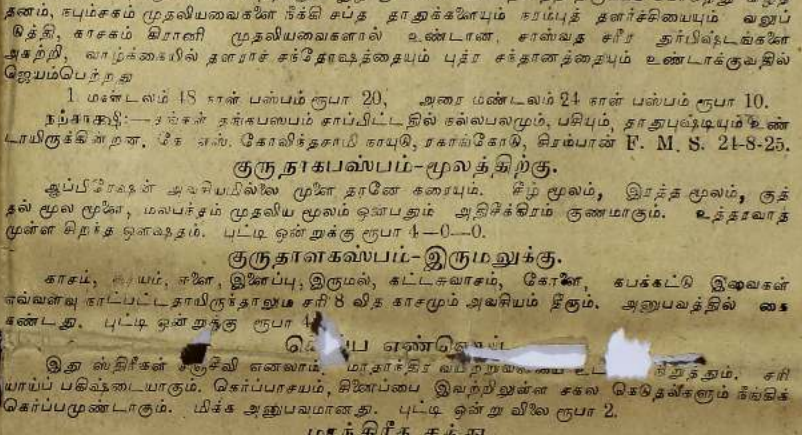 தனம், நபும்சகம் முதலியவைகளை நீக்கி சப்த தாதுக்களையும் நரம்புத் தளர்ச்சியையும் வலுப்
டுத்தி, காசகம் கிராணி முதலியவைகளால் உண்டான, சாஸ்வத சரீர துர்பிஷ்டங்களை
அகற்றி, வாழ்க்கையில் தளராச் சந்தோஷத்தையும் புத்ர சந்தானத்தையும் உண்டாக்குவதில்
ஜெயம்பெற்றது
1 மண்டலம் 48 நாள் பஸ்பம் ரூபா 20, அரை மண்டலம் 24 நாள் பஸ்பம் ரூபா 10.
நற்சாக்ஷி:— தங்கள் தங்கபஸ்பம் சாப்பிட்டதில் நல்லபலமும், பசியும், தாதுபுஷ்டியும் உண்
டாயிருக்கின்றன. கே. எஸ். கோவிந்தசாமி நாயுடு, ரகாங்கோடு, கிரம்பான் F. M. S. 24-8-25.
குருநாகபஸ்பம்-மூலத்திற்கு.
ஆப்பிரேஷன் அவசியமில்லை முளை தானே கரையும். கீழ் மூலம், இரத்த மூலம், குத்
தல் மூல மூளை, மலபந்தம் முதலிய மூலம் ஒன்பதும் அதிசீக்கிரம் குணமாகும். உத்தரவாத
முள்ள சிறந்த ஔஷதம். புட்டி ஒன்றுக்கு ரூபா 4—0—0.
குருதாளகஸ்பம்-இருமலுக்கு.
காசம், க்ஷயம், ஈளை, இளைப்பு, இருமல், கட்டசுவாசம், கோளை, கபக்கட்டு இவைகள்
எவ்வளவு நாட்பட்டதாயிருந்தாலும் சரி 8 வித காசமும் அவசியம் தீரும். அனுபவத்தில் கை
கண்டது. புட்டி ஒன்றுக்கு ரூபா 4
எண்ணெய்
இது ஸ்திரீகள் சஞ்சீவி எனலாம். மாதாந்திர நிறுத்தும். சரி
யாய்ப் பகிஷ்டையாகும். கெர்ப்பாசயம், சினைப்பை இவற்றிலுள்ள சகல கெடுதலிகளும் நீங்கிக்
கெர்ப்பமுண்டாகும். மிக்க அனுபவமானது. புட்டி ஒன்று விலை ரூபா 2.